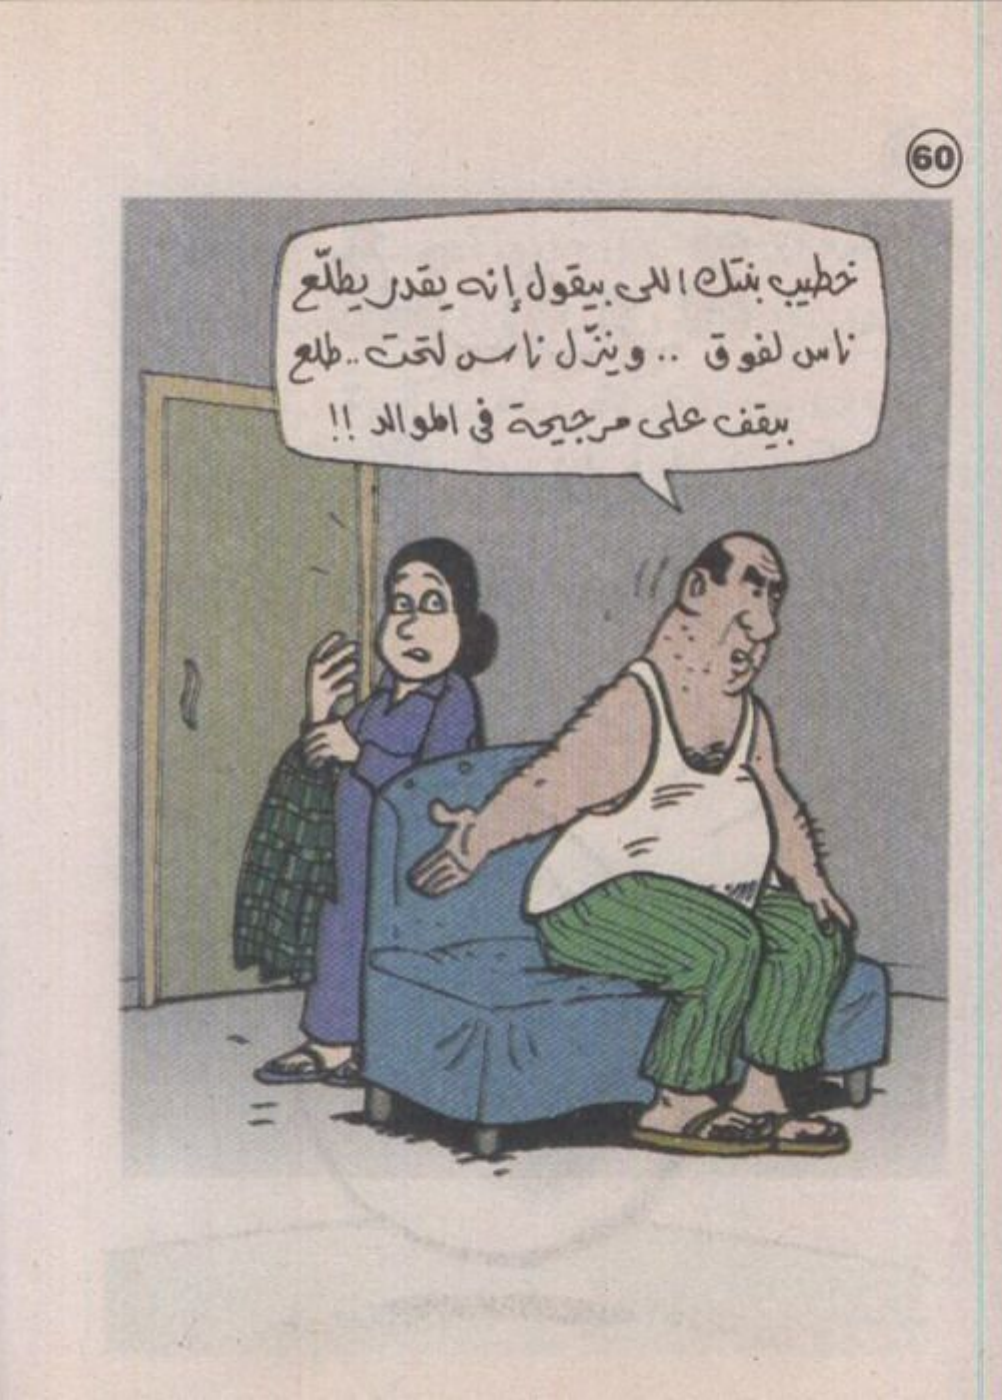 60
خطيب بنتك اللى بيقول إنه يقدر يطلّع
ناس لفوق .. وينزّل ناس لتحت .. طلع
بيقف على مرجيحة فى الموالد !!